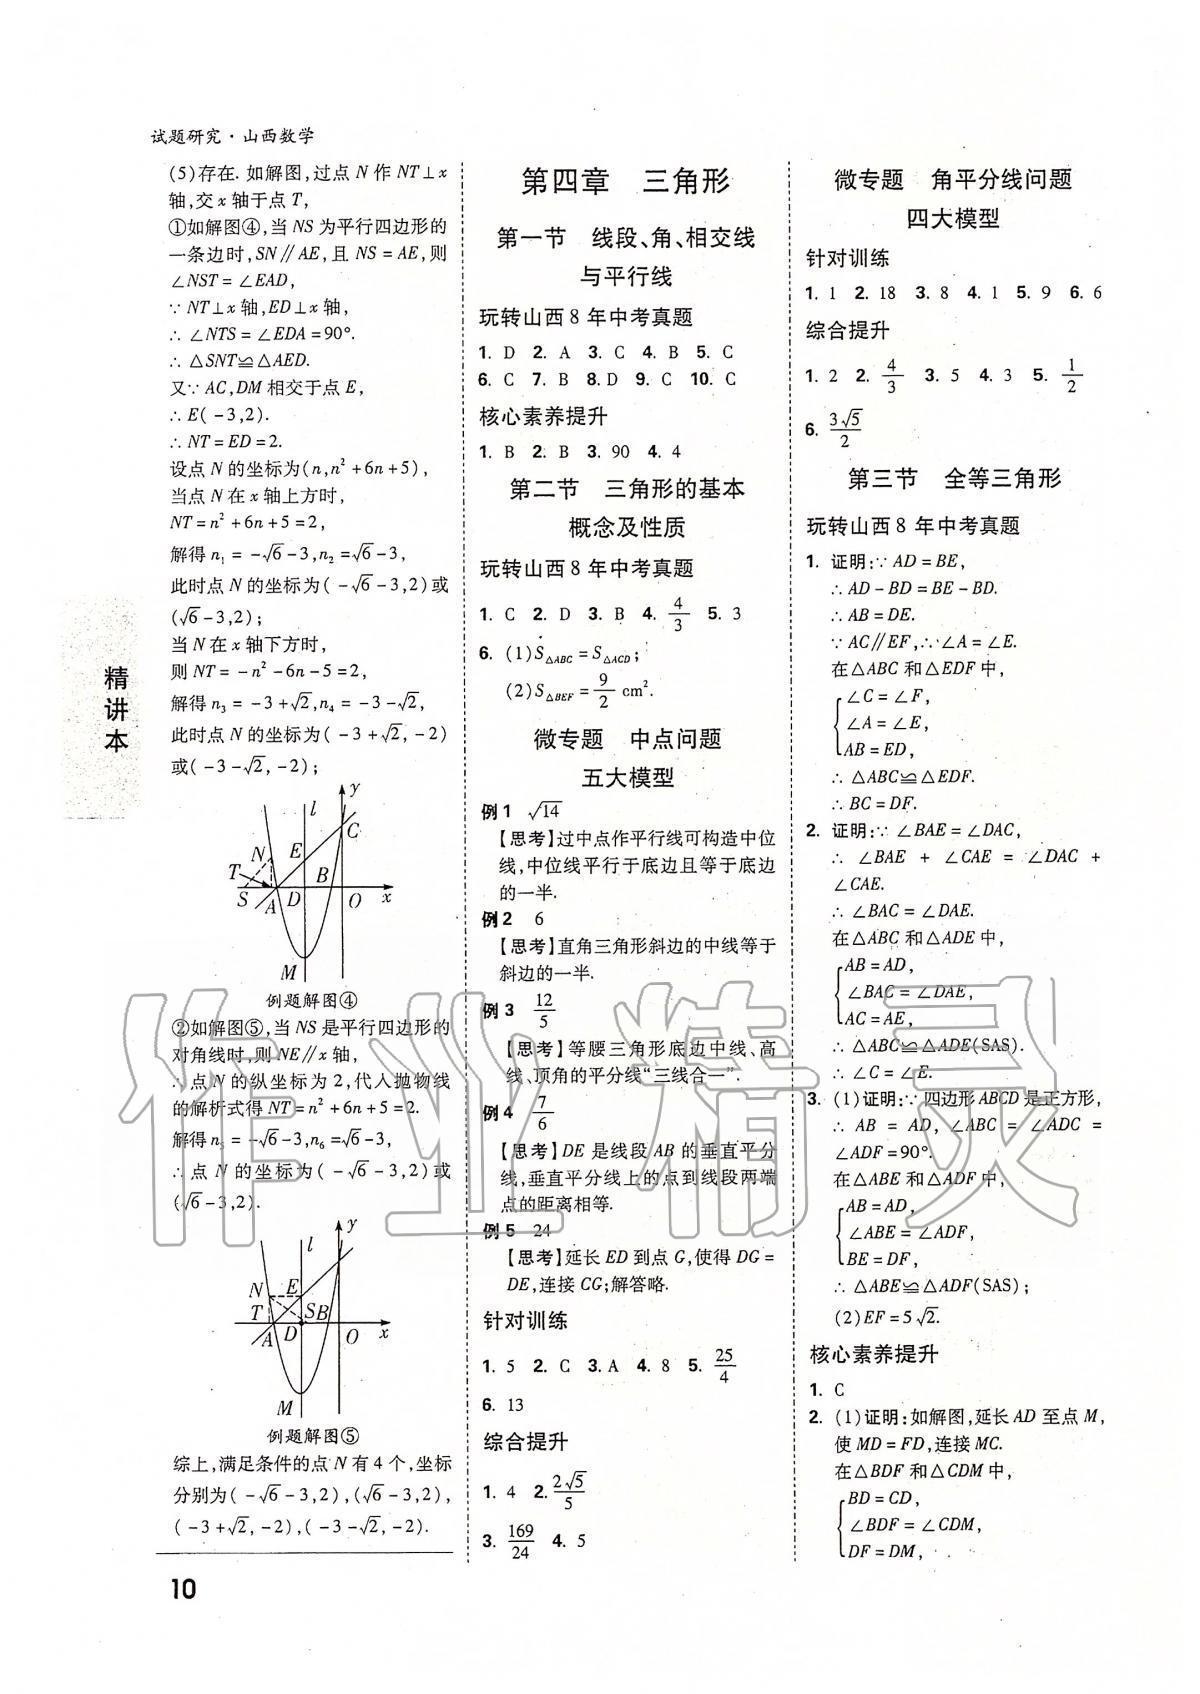 试题研究·山西数学
(5)存在. 如解图,过点 N 作 NT⊥x
轴,交 x 轴于点 T,
①如解图④,当 NS 为平行四边形的
一条边时,SN∥AE,且 NS=AE,则
∠NST=∠EAD,
∵NT⊥x 轴,ED⊥x 轴,
∴∠NTS=∠EDA=90°.
∴△SNT≌△AED.
又∵AC,DM 相交于点 E,
∴E(-3,2).
∴NT=ED=2.
设点 N 的坐标为(n,n²+6n+5),
当点 N 在 x 轴上方时,
NT=n²+6n+5=2,
解得 n₁=-√6-3,n₂=√6-3,
此时点 N 的坐标为(-√6-3,2)或
(√6-3,2);
当 N 在 x 轴下方时,
则 NT=-n²-6n-5=2,
解得 n₃=-3+√2,n₄=-3-√2,
此时点 N 的坐标为(-3+√2,-2)
或(-3-√2,-2);
y
l
C
N E
T B
S A D O x
M
例题解图④
②如解图⑤,当 NS 是平行四边形的
对角线时,则 NE∥x 轴,
∴点 N 的纵坐标为 2,代入抛物线
的解析式得 NT=n²+6n+5=2.
解得 n₅=-√6-3,n₆=√6-3,
∴点 N 的坐标为(-√6-3,2)或
(√6-3,2).
y
l
N E
T S B
A D O x
M
例题解图⑤
综上,满足条件的点 N 有 4 个,坐标
分别为(-√6-3,2),(√6-3,2),
(-3+√2,-2),(-3-√2,-2).
精讲本
10
第四章 三角形
第一节 线段、角、相交线
与平行线
玩转山西 8 年中考真题
1. D 2. A 3. C 4. B 5. C
6. C 7. B 8. D 9. C 10. C
核心素养提升
1. B 2. B 3. 90 4. 4
第二节 三角形的基本
概念及性质
玩转山西 8 年中考真题
1. C 2. D 3. B 4. 4/3 5. 3
6. (1)S△ABC=S△ACD;
(2)S△BEF=9/2 cm².
微专题 中点问题
五大模型
例 1 √14
【思考】过中点作平行线可构造中位
线,中位线平行于底边且等于底边
的一半.
例 2 6
【思考】直角三角形斜边的中线等于
斜边的一半.
例 3 12/5
【思考】等腰三角形底边中线、高
线、顶角的平分线“三线合一”.
例 4 7/6
【思考】DE 是线段 AB 的垂直平分
线,垂直平分线上的点到线段两端
点的距离相等.
例 5 24
【思考】延长 ED 到点 G,使得 DG=
DE,连接 CG;解答略.
针对训练
1. 5 2. C 3. A 4. 8 5. 25/4
6. 13
综合提升
1. 4 2. 2√5/5
3. 169/24 4. 5
微专题 角平分线问题
四大模型
针对训练
1. 1 2. 18 3. 8 4. 1 5. 9 6. 6
综合提升
1. 2 2. 4/3 3. 5 4. 3 5. 1/2
6. 3√5/2
第三节 全等三角形
玩转山西 8 年中考真题
1. 证明:∵AD=BE,
∴AD-BD=BE-BD.
∴AB=DE.
∵AC∥EF,∴∠A=∠E.
在△ABC 和△EDF 中,
∠C=∠F,
∠A=∠E,
AB=ED,
∴△ABC≌△EDF.
∴BC=DF.
2. 证明:∵∠BAE=∠DAC,
∴∠BAE+∠CAE=∠DAC+
∠CAE.
∴∠BAC=∠DAE.
在△ABC 和△ADE 中,
AB=AD,
∠BAC=∠DAE,
AC=AE,
∴△ABC≌△ADE(SAS).
∴∠C=∠E.
3. (1)证明:∵四边形 ABCD 是正方形,
∴AB=AD,∠ABC=∠ADC=
∠ADF=90°.
在△ABE 和△ADF 中,
AB=AD,
∠ABE=∠ADF,
BE=DF,
∴△ABE≌△ADF(SAS);
(2)EF=5√2.
核心素养提升
1. C
2. (1)证明:如解图,延长 AD 至点 M,
使 MD=FD,连接 MC.
在△BDF 和△CDM 中,
BD=CD,
∠BDF=∠CDM,
DF=DM,
作业精灵